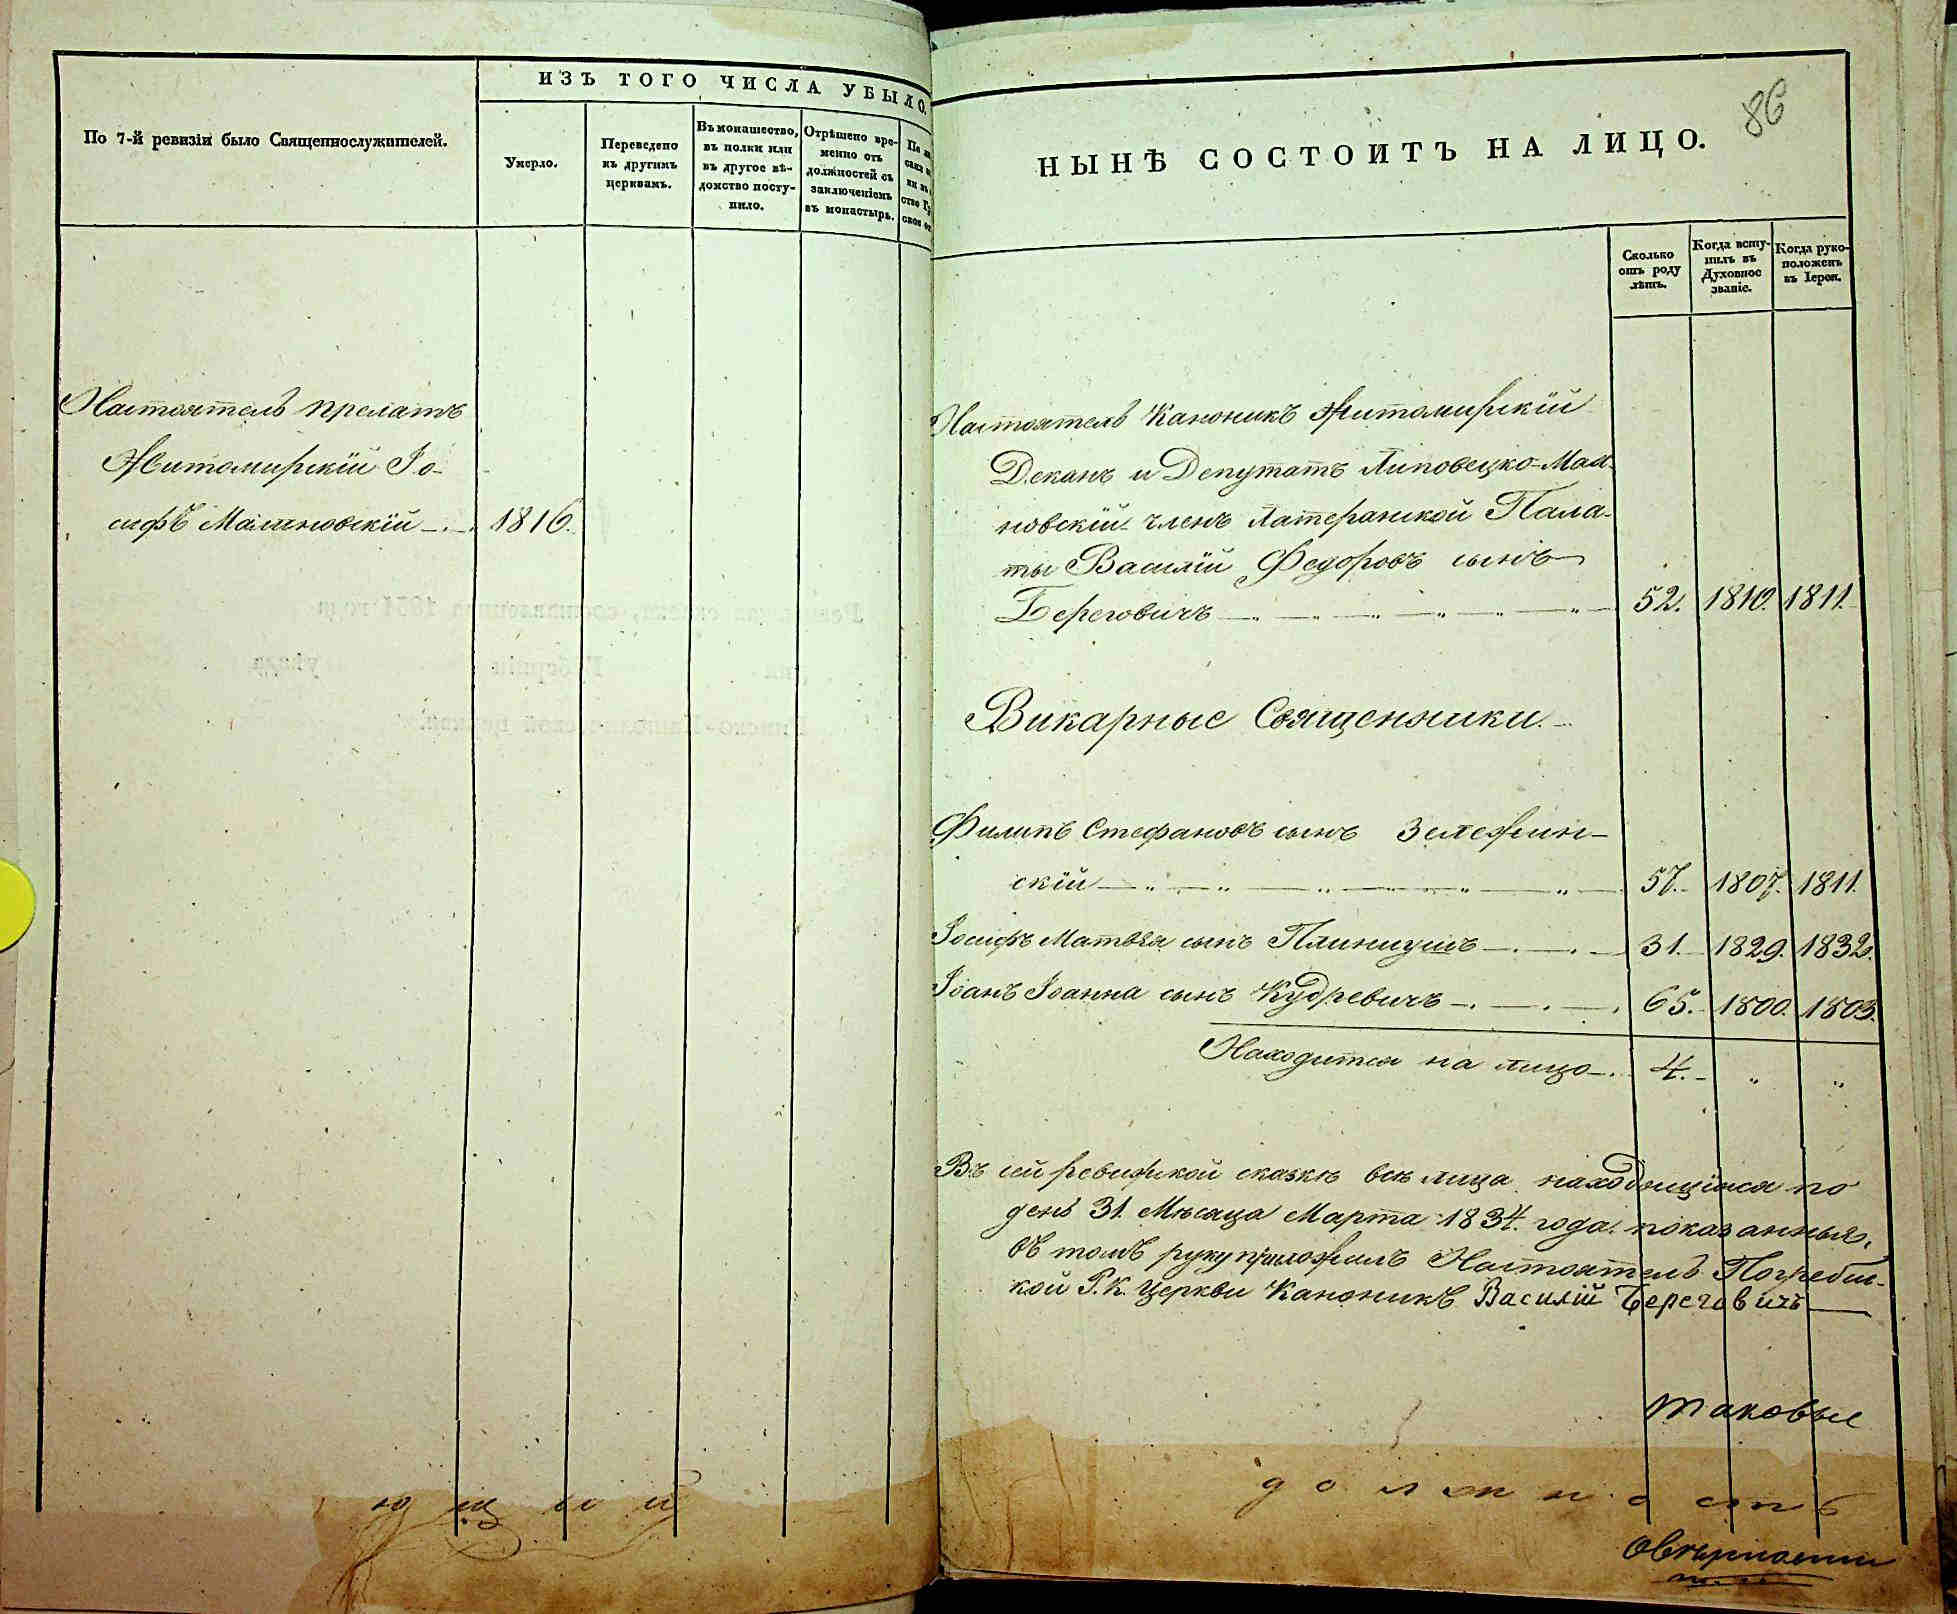 По 7-й ревизіи было Священнослужителей.
ИЗЪ ТОГО ЧИСЛА УБЫЛО.
Умерло.
Переведено
къ другимъ
церквамъ.
Въ монашество,
въ полки или
въ другое вѣ-
домство посту-
пило.
Отрѣшено вре-
менно отъ
должностей съ
заключеніемъ
въ монастырь.
Настоятель прелатъ
Житомирскій Іо-
сифъ Малиновскій 1816.
ющій
86
НЫНѢ СОСТОИТЪ НА ЛИЦО.
Сколько
отъ роду
лѣтъ.
Когда всту-
пилъ въ
Духовное
званіе.
Когда руко-
положенъ
въ Іерея.
Настоятель Каноникъ Житомирскій
Деканъ и Депутатъ Липовецко-Мах-
новскій членъ Латеранской Пала-
ты Василій Федоровъ сынъ
Береговичъ 52. 1810. 1811.
Викарные Священники.
Филипъ Стефановъ сынъ Зележин-
скій 57. 1807. 1811.
Іосифъ Матвѣя сынъ 31. 1829. 1832.
Іоанъ Іоанна сынъ Кудревичъ 65. 1800. 1803.
Находится на лицо 4. " "
Въ сей ревизской сказкѣ всѣ лица находящіяся по
день 31. Мѣсаца Марта 1834. года показанныя,
въ томъ руку приложилъ Настоятель Погребис-
кой Р. К. Церкви Каноникъ Василій Береговичъ
таковые
должность